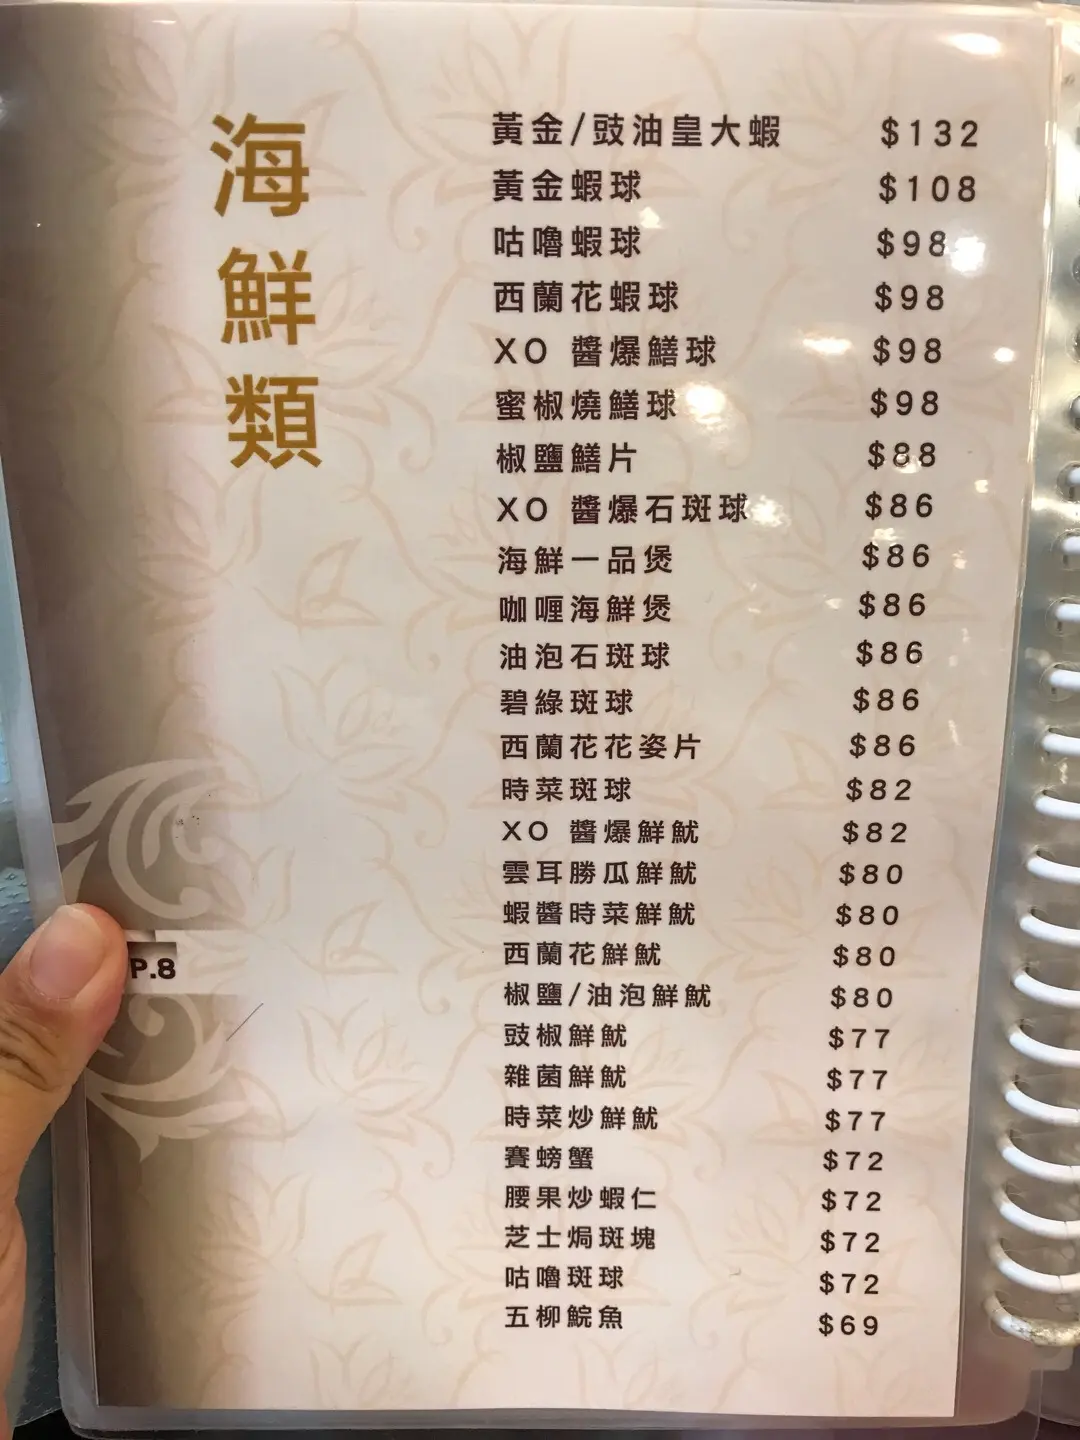 海鮮類
黃金/豉油皇大蝦 $132
黃金蝦球 $108
咕嚕蝦球 $98
西蘭花蝦球 $98
XO 醬爆鱔球 $98
蜜椒燒鱔球 $98
椒鹽鱔片 $88
XO 醬爆石斑球 $86
海鮮一品煲 $86
咖喱海鮮煲 $86
油泡石斑球 $86
碧綠斑球 $86
西蘭花花姿片 $86
時菜斑球 $82
XO 醬爆鮮魷 $82
雲耳勝瓜鮮魷 $80
蝦醬時菜鮮魷 $80
西蘭花鮮魷 $80
椒鹽/油泡鮮魷 $80
豉椒鮮魷 $77
雜菌鮮魷 $77
時菜炒鮮魷 $77
賽螃蟹 $72
腰果炒蝦仁 $72
芝士焗斑塊 $72
咕嚕斑球 $72
五柳鯇魚 $69
P.8